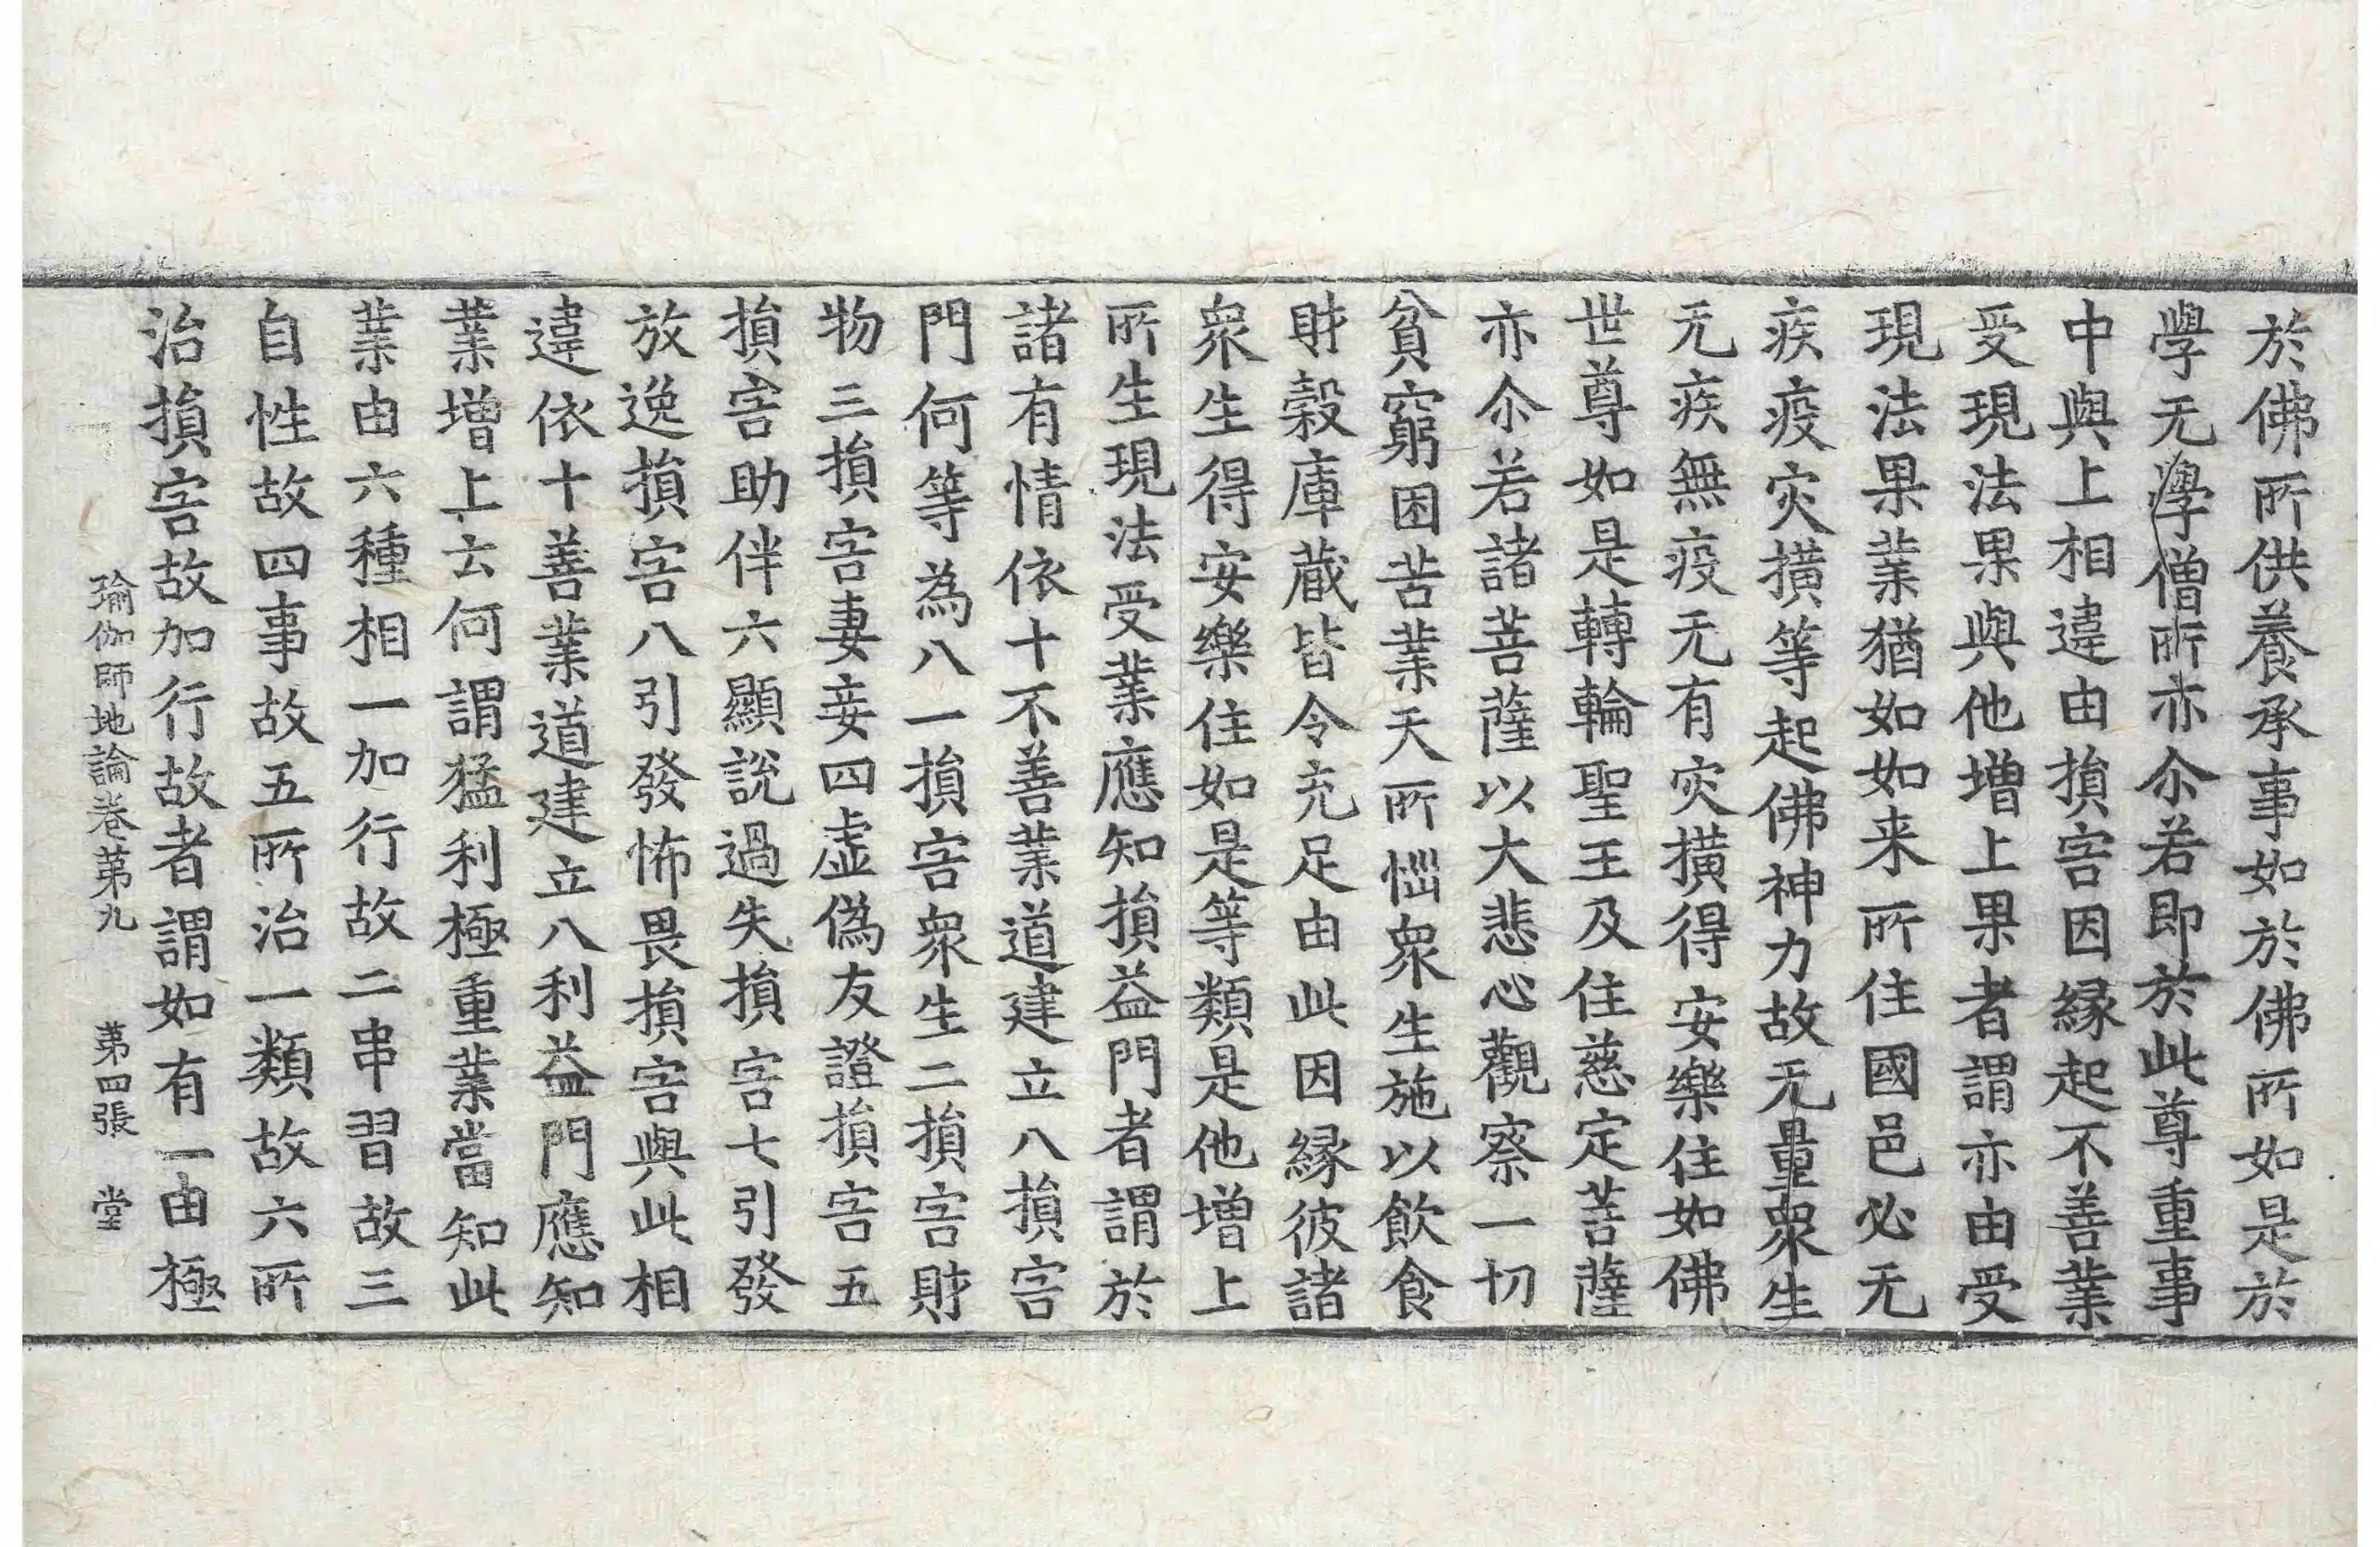 於佛所供養承事如於佛所如是於
學无學僧所亦尒若即於此尊重事
中與上相違由損害因縁起不善業
受現法果與他增上果者謂亦由受
現法果業猶如如来所住國邑必无
疾疫灾撗等起佛神力故无量衆生
无疾無疫无有灾撗得安樂住如佛
世尊如是轉輪聖王及住慈定菩薩
亦尒若諸菩薩以大悲心觀察一切
貧窮困苦業天所惱衆生施以飲食
財穀庫蔵皆令充足由此因縁彼諸
衆生得安樂住如是等類是他增上
所生現法受業應知損益門者謂於
諸有情依十不善業道建立八損害
門何等為八一損害衆生二損害財
物三損害妻妾四虛偽友證損害五
損害助伴六顯說過失損害七引發
放逸損害八引發怖畏損害與此相
違依十善業道建立八利益門應知
業增上云何謂猛利極重業當知此
業由六種相一加行故二串習故三
自性故四事故五所治一類故六所
治損害故加行故者謂如有一由極
瑜伽師地論卷第九 第四張 堂